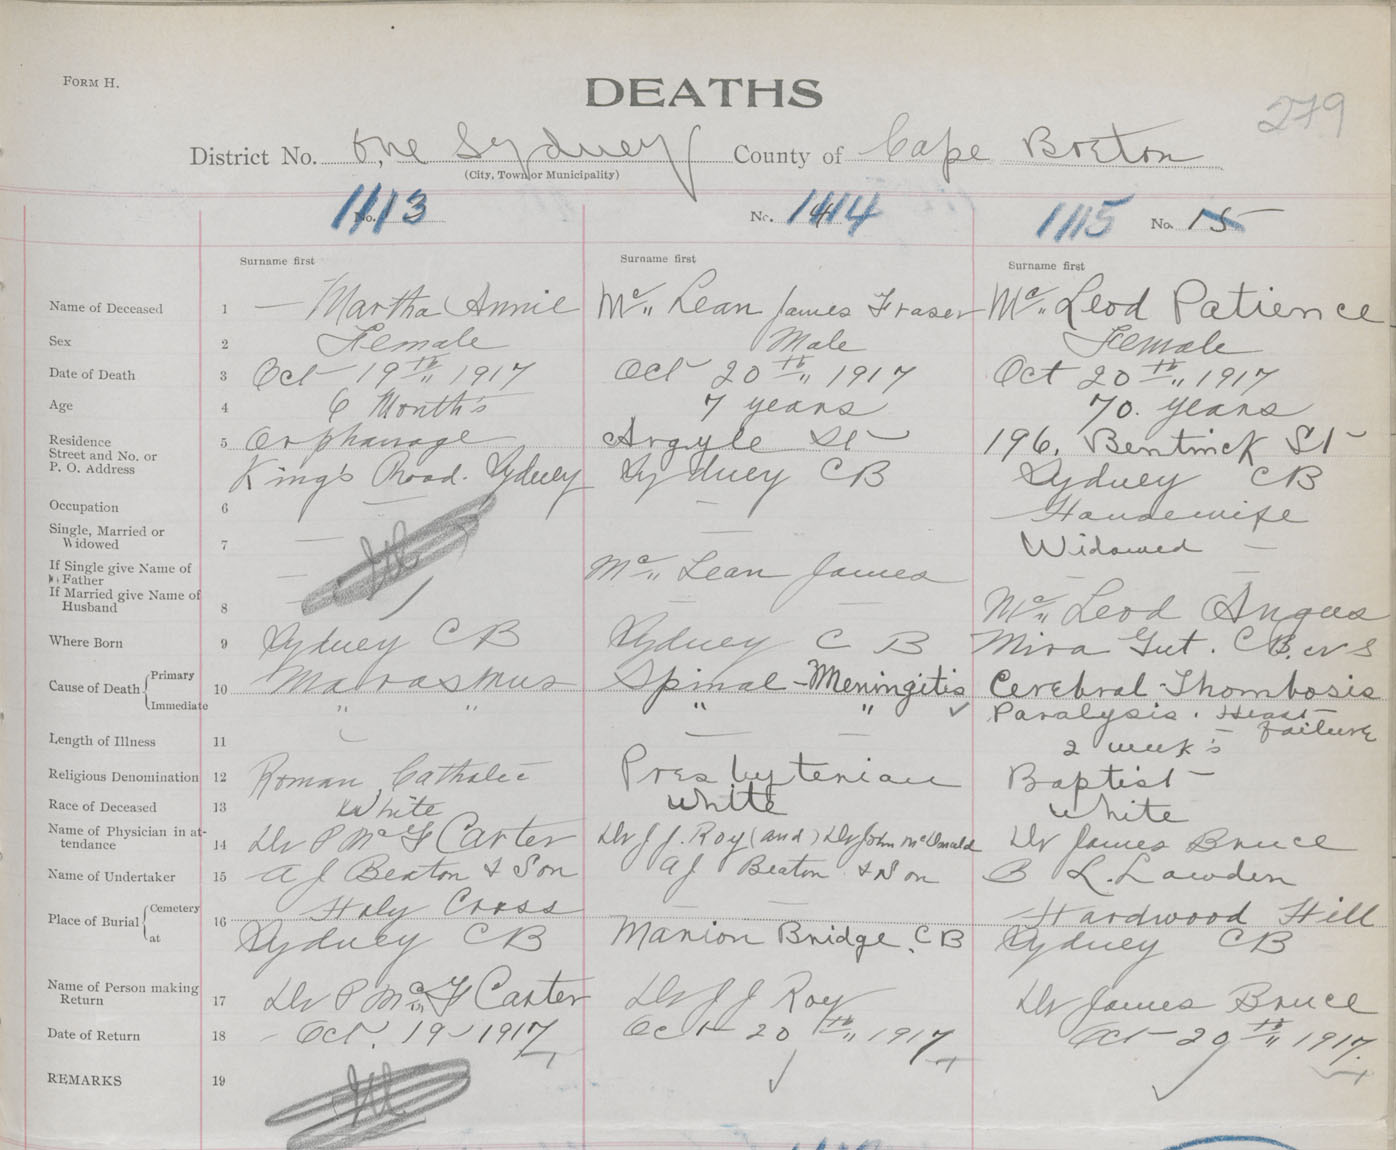 FORM H.
DEATHS
279
District No. One Sydney County of Cape Breton
(City, Town or Municipality)
No. 1113 No. 1114 1115 No. 15
Surname first Surname first Surname first
Name of Deceased 1 — Martha Annie Mc„ Lean James Fraser Mc„ Leod Patience
Sex 2 Female Male Female
Date of Death 3 Oct 19th„ 1917 Oct 20th„ 1917 Oct 20th„ 1917
Age 4 6 Month's 7 years 70. years
Residence 5 Orphanage Argyle St 196, Bentinck St
Street and No. or
P. O. Address King's Road. Sydney Sydney CB Sydney CB
Occupation 6 — — Housewife
Single, Married or
Widowed 7 — — Widowed —
If Single give Name of
Father — Mc„ Lean James —
If Married give Name of
Husband 8 — — Mc„ Leod Angus
Where Born 9 Sydney CB Sydney C B Mira Gut. CB. N S
Cause of Death Primary 10 Marasmus Spinal-Meningitis Cerebral-Thombosis
Immediate „ „ „ „ Paralysis. Heart failure
Length of Illness 11 — — 2 week's
Religious Denomination 12 Roman Catholic Presbyterian Baptist
Race of Deceased 13 White White White
Name of Physician in at-
tendance 14 Dr P McF Carter Dr J J. Roy (and) Dr John McDonald Dr James Bruce
Name of Undertaker 15 A J Beaton & Son A J Beaton & Son B L. Lowden
Place of Burial Cemetery 16 Holy Cross — — Hardwood Hill
at Sydney CB Marion Bridge, CB Sydney CB
Name of Person making
Return 17 Dr P Mc„ F Carter Dr J J Roy Dr James Bruce
Date of Return 18 - Oct. 19 - 1917 Oct 20th„ 1917 Oct 20th„ 1917.
REMARKS 19